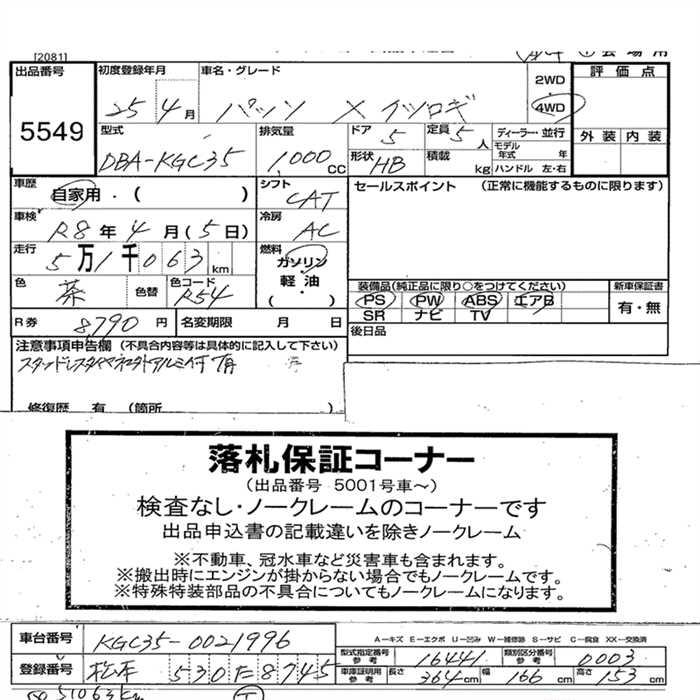 [2081]
出品番号 初度登録年月 車名・グレード 2WD 評価点
5549 25 4月 パッソ X 4WD
外装 内装
型式 排気量 ドア 5 定員 5人 ディーラー・並行
DBA-KGC35 1,000CC 形状 HB 積載 kg モデル年式 年
ハンドル 左・右
車歴 自家用・( ) シフト CAT セールスポイント (正常に機能するものに限ります)
車検 R8年4月(5日) 冷房 AC
走行 5万1千063km 燃料 ガソリン・軽油( )
色 茶 色替 色コード R54
装備品(純正品に限り○をつけてください) 新車保証書
PS PW ABS エアB 有・無
SR ナビ TV
R券 8,790円 名変期限 月 日 後日品
注意事項申告欄 (不具合内容等は具体的に記入して下さい)
修復歴 有 (箇所 )
落札保証コーナー
(出品番号 5001号車～)
検査なし・ノークレームのコーナーです
出品申込書の記載違いを除きノークレーム
※不動車、冠水車など災害車も含まれます。
※搬出時にエンジンが掛からない場合でもノークレームです。
※特殊特装部品の不具合についてもノークレームになります。
A－キズ E－エクボ U－凹み W－補修跡 S－サビ C－腐食 XX－交換済
車台番号 KGC35-0021996 型式指定番号 参考 16441 類別区分番号 参考 0003
登録番号 松本 530 た 8745 車庫証明用 参考 長さ 364cm 幅 166cm 高さ 153cm
51063km